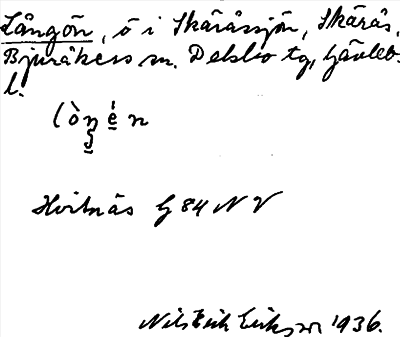 Långön, ö i Skäråssjön, Skärås,
Bjuråkers sn. Delsbo tg, Gävleb.
l.
Hvitnäs G 84 N V
Nils Erik Eriksson 1936.